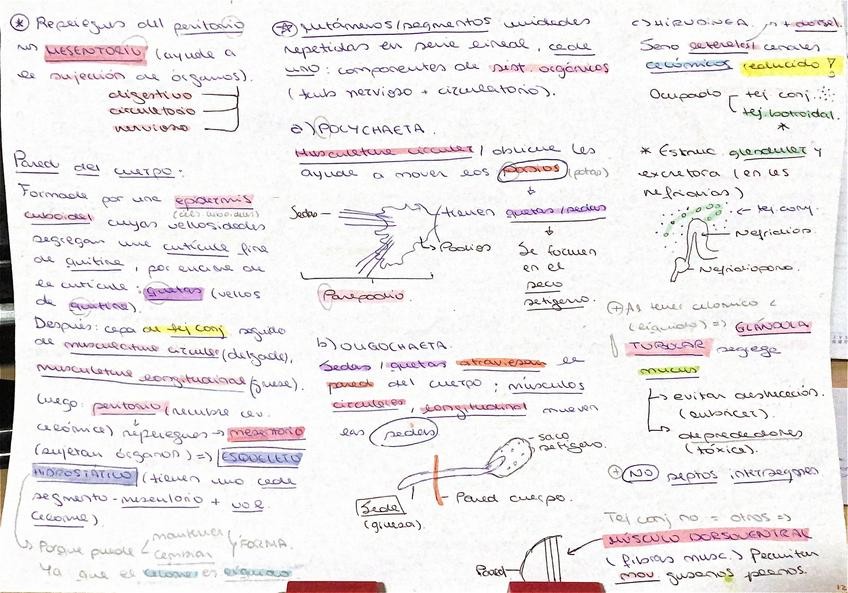 * Repliegues del peritorio
MESENTORIO (ayuda a
la sujección de órganos).
digestivo
circulatorio
nervioso
Pared del cuerpo:
Formada por una epidermis
cuboidel cuyas vellosidades
(cels cuboidales)
segregan una cutícula fina
de quitina, por encima de
la cutícula: quetas (vellos
de quitina).
Después: capa de tej conj seguido
de musculatura circular (delgada),
musculatura longitudinal (gruesa).
Luego: peritorio (recubre cav.
celómica) repliegues → mesentorio
(sujetan órganos) => ESQUELETO
HIDROSTÁTICO (tienen uno cada
segmento - mesentorio + vol.
celoma)
→ Porque puede
mantener
cambiar
FORMA.
Ya que el celoma es líquido
* metámeros/segmentos unidades
repetidas en serie lineal, cada
uno: componentes de sist. orgánicos
(tubo nervioso + circulatorio).
a) POLYCHAETA.
Musculatura circular / oblicua les
ayuda a mover los podios (patas)
tienen quetas/sedas
Sedas
Podios
Parapodio.
Se forman
en el
saco
setígero.
b) OLIGOCHAETA.
Sedas/quetas atraviesan la
pared del cuerpo; músculos
circulares, longitudinal mueven
las sedas
saco
setígero.
Seda
(gruesa)
Pared cuerpo.
Pared
c) HIRUDINEA.
+ dorsel.
Seno laterales canales
celómicos (reducido)!
Ocupado
tej conj.
tej. botroidal.
*
* Estruc glandular y
excretora (en las
nefridias)
tej conj.
Nefridios.
Nefridioporo.
+ As tener celómico c
(líquido) => GLÁNDULA
TUBULAR segrega
mucus
→ evitar desecación.
→ depredadores
(tóxica).
+ NO septos intersegmen
Tej conj no = otros =>
MÚSCULO DORSOVENTRAL
(fibras musc.) Permitan
mov gusanos planos.
12